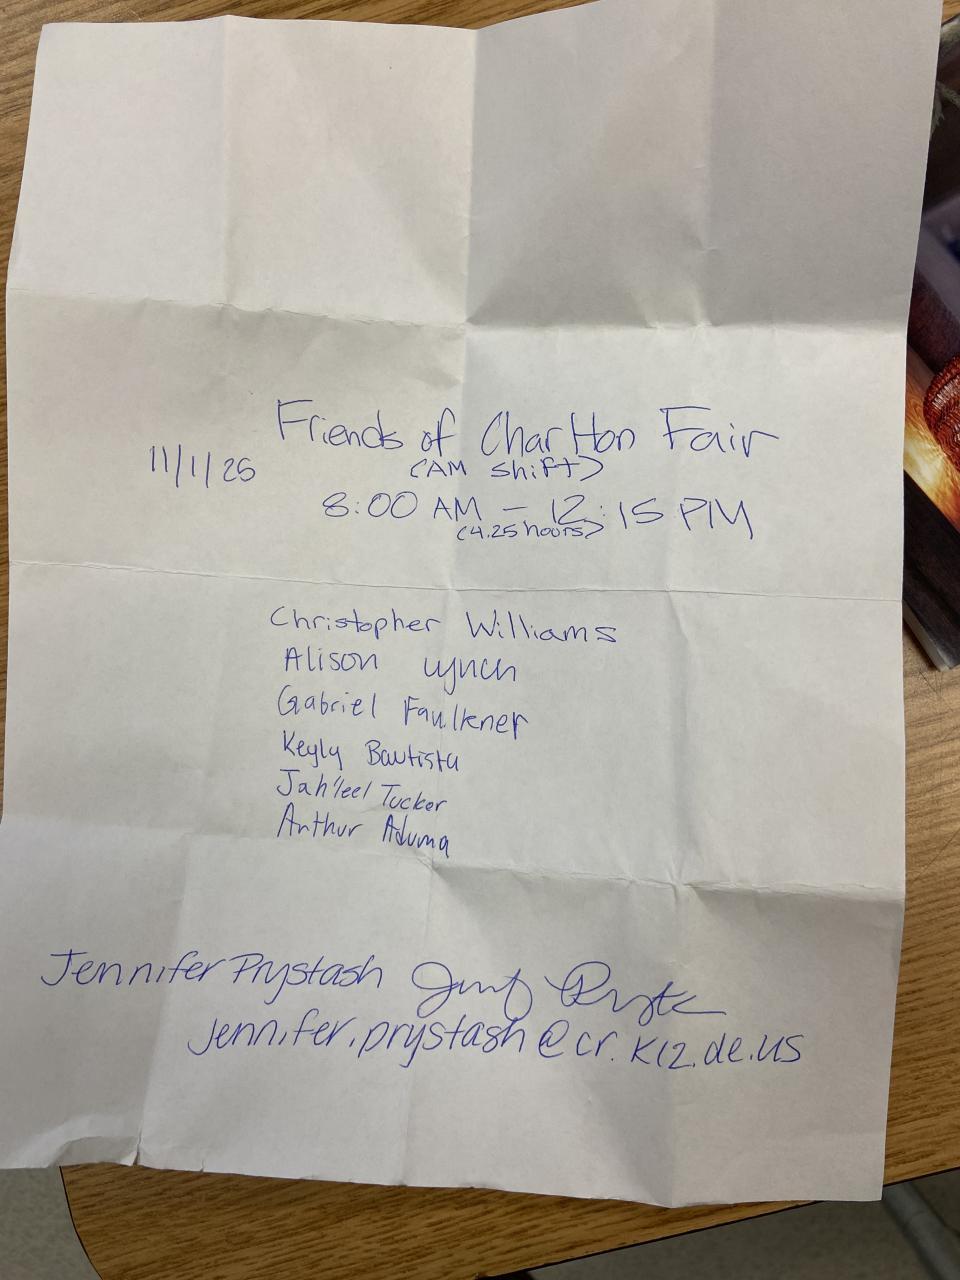 Friends of Charlton Fair
11/1/25
(AM shift)
8:00 AM - 12:15 PM
(4.25 hours)
Christopher Williams
Alison Lynch
Gabriel Faulkner
Keyly Bautista
Jah'leel Tucker
Arthur Aduma
Jennifer Prystash
jennifer.prystash@cr.k12.de.us